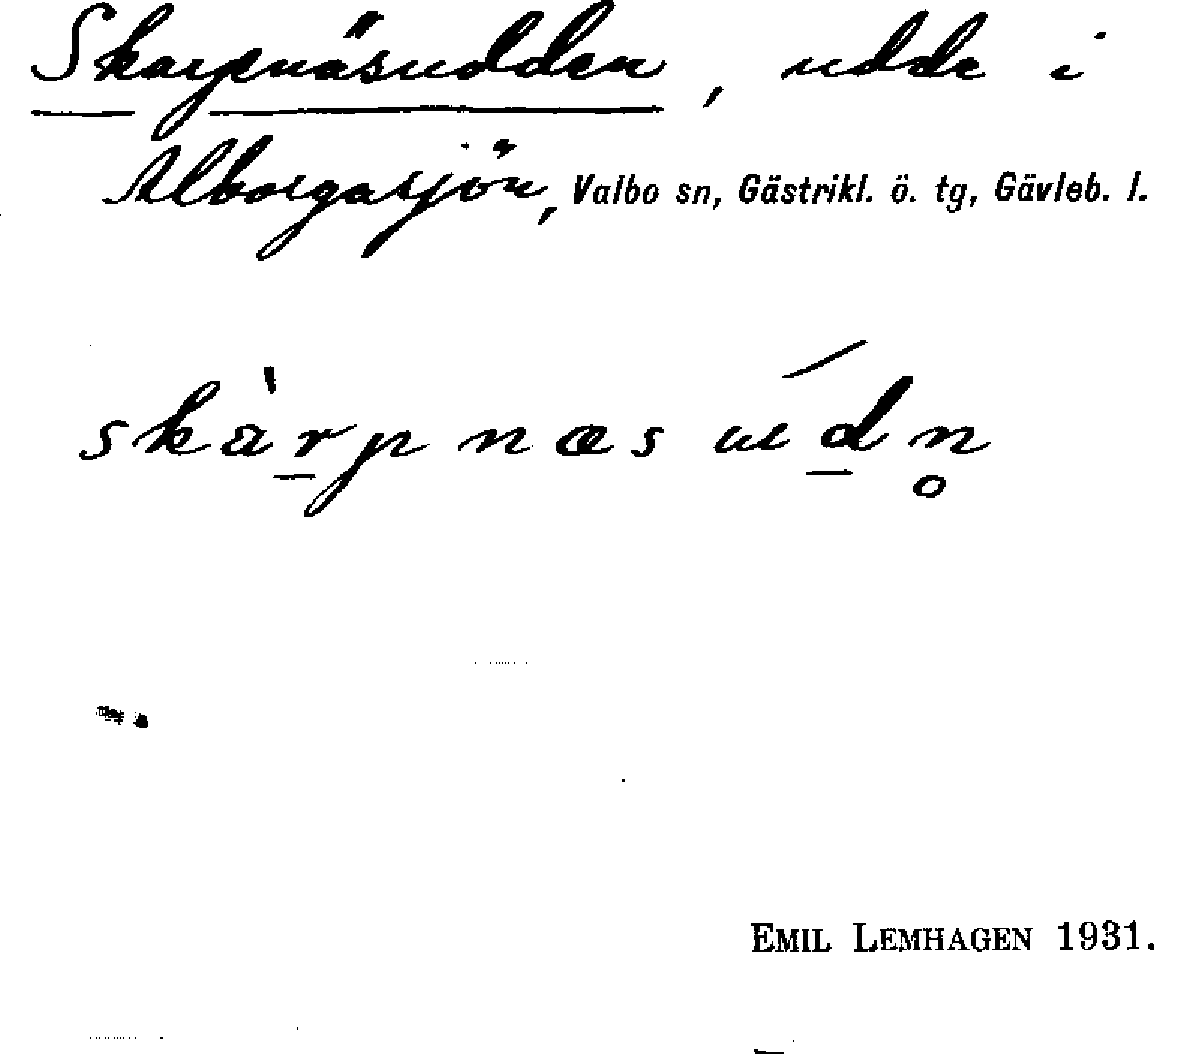 Skarpnäsudden, udde i
Alborgasjön, Valbo sn, Gästrikl. ö. tg, Gävleb. l.
skàr̲pnæsúd̲n̥
EMIL LEMHAGEN 1931.